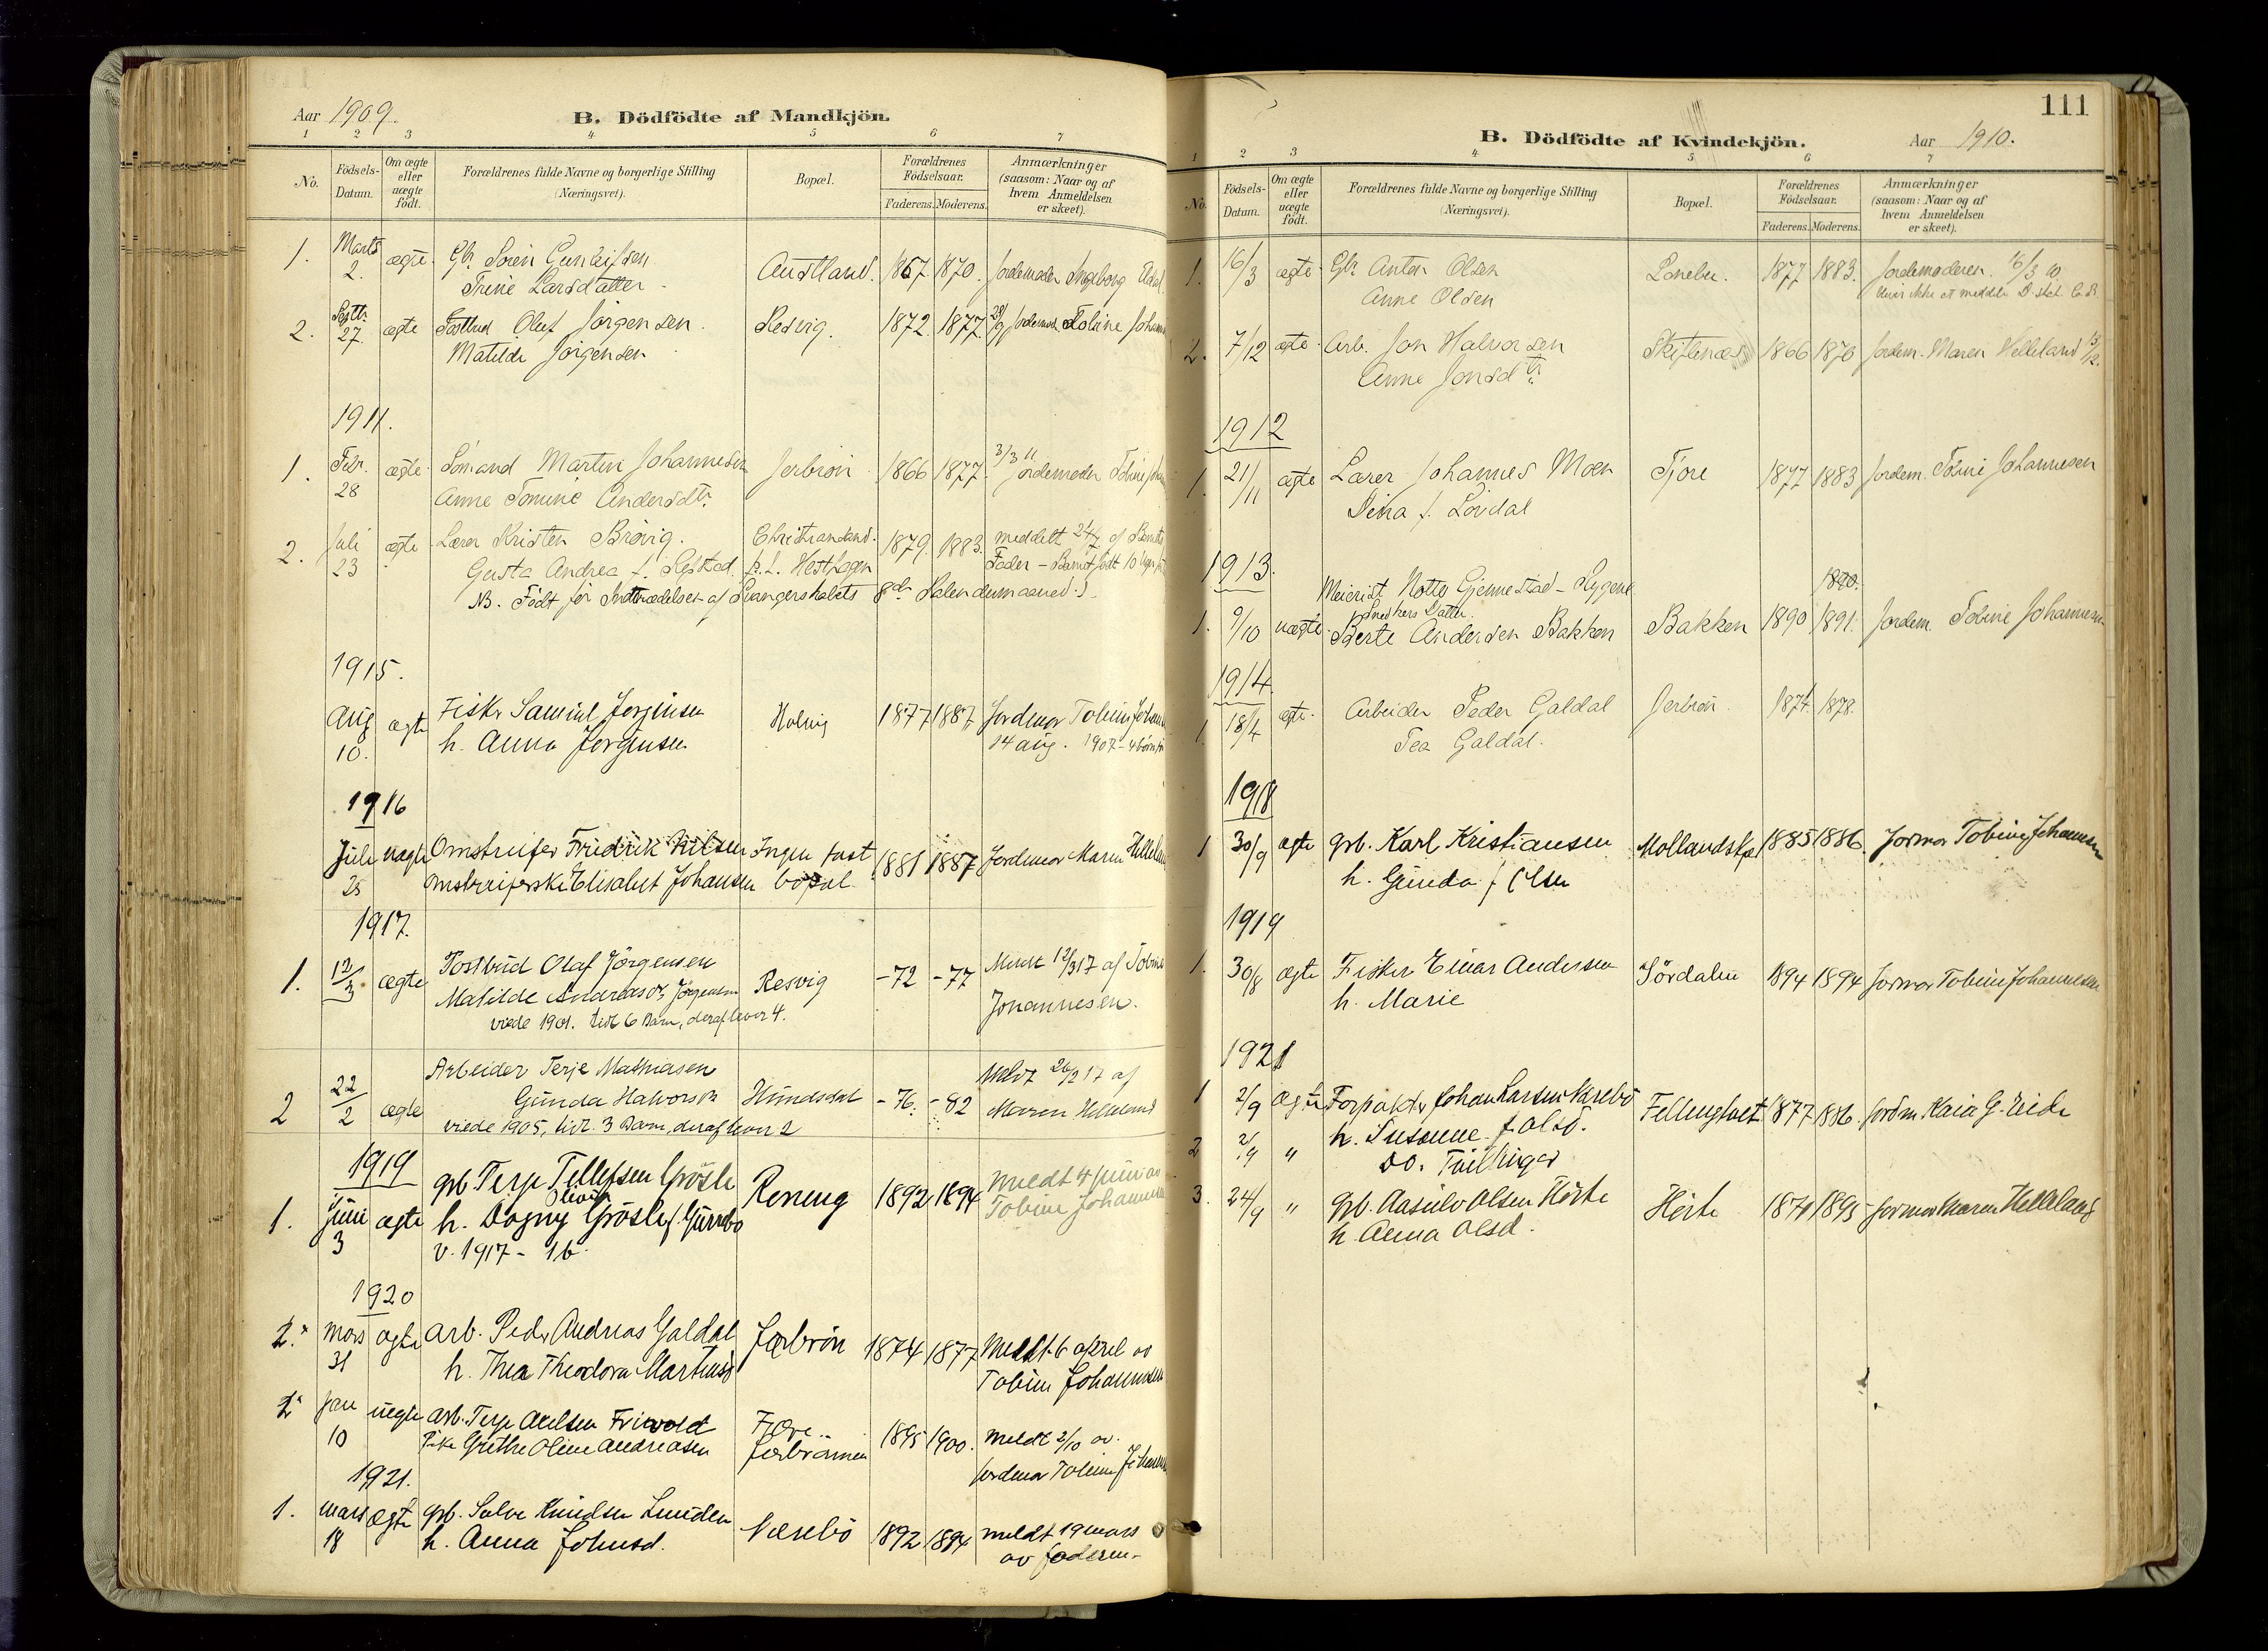 Aar 1909.
B. Dödfödte af Mandkjön.
1 2 3 4 5 6 7
No.
Födsels-Datum.
Om ægte eller uægte födt.
Forældrenes fulde Navne og borgerlige Stilling (Næringsvei).
Bopæl.
Forældrenes Födselsaar.
Faderens. Moderens.
Anmærkninger (saasom: Naar og af hvem Anmeldelsen er skeet).
1. Marts 2. ægte. Gbr. Sören Gunleifsen Austland. 1867. 1870. Jordemoder Ingeborg
Trine Larsdatter
2. Septbr. 27. ægte Postbud Oluf Jörgensen. Resvig. 1872. 1877. 28/9 Jordemod. Tobine
Matilde Jörgensen
1911.
1. Febr. 28 ægte. Sömand Martin Johannesen Jerbrön 1866 1877. 3/3 11 Jordemoder Tobine
Anne Tomine Andersdtr.
2. Juli 23 ægte Lærer Kristen Brövig. Christianssand. 1879. 1883. meddelt 24/7 af Barnets
Gusta Andrea f. p.t. Hesthagen Fader - Barnet födt 10
NB. Födt for Indtrædelsen af Svangerskabets 8de Kalendermaaned.)
1915.
Aug 10. ægte Fisker Samuel Jörginsen 1877 1887 Jordmor Tobine
h. Anna Jorginsen 14 aug. 1907 - 4 börn
1916
Juli 25 uægte Omstreifer Fredrik Nilsen Ingen fast 1881 1887 Jordmor Maren
Omstreiferske Elisabet Johansen bopæl
1917.
1. 12/3 ægte Postbud Olaf Jörgensen Resvig -72 -77 Meldt 12/3 17 af Tobine
Matilde Jörgensen Johannesen.
viede 1901. tidl. 6 Barn, deraf lever 4.
2 22/2 ægte Arbeider Terje Mathiasen Hundsdal -76. -82 Meldt 26/2 17 af
Gunda Halvorsen Maren Helleland
viede 1905, tidl. 3 Barn, deraf lever 2
1919
1. Juni 3 ægte gb. Terje Tellefsen Grösle Reneng 1892 1894 Meldt 4 juni av
Olivia
h. Dagny Grösle f. Tobine Johannesen
v. 1917 - 1 b.
1920
mars 31 ægte Arb. Peder Andreas Galdal Jærbrön 1874 1877 Meldt 6 april av
h. Thea Theodora Tobine Johannesen
Jan 10 uegte Arb. Terje Axelsen Frivold Fjære.. 1895 1900. meldt 2/10 av.
Pike Grethe Oline Andreasen jordmor Tobine
1921.
1. mars 18 ægte gb. Salve Knudsen Lunden 1892 1894 meldt 19 mars
h. Anna Johnsd. av faderen.
111
B. Dödfödte af Kvindekjön.
Aar 1910.
1 2 3 4 5 6 7
No.
Födsels-Datum.
Om ægte eller uægte födt.
Forældrenes fulde Navne og borgerlige Stilling (Næringsvei).
Bopæl.
Forældrenes Födselsaar.
Faderens. Moderens.
Anmærkninger (saasom: Naar og af hvem Anmeldelsen er skeet).
1. 16/3 ægte Gbr. Anton Olsen 1877 1883. Jordemoderen. 16/3 10
Anne Olsen
2. 7/12 ægte Arb. Jon Halvorsen Skiftenæs 1866 1870 Jordem. Maren Helleland
Anne Jonsdtr.
1912
1. 21/11 ægte Lærer Johannes Moen Fjöre 1877 1883 Jordem. Tobine Johannesen
Dina f. Lövdal
1913.
Meierist Notto Gjennestad - Rygene 1890.
Snedkers Datter.
1. 9/10 uægte Berte Andersen Bakken Bakken 1890 1891. Jordem. Tobine Johannesen
1914
1. 18/4 ægte. Arbeider Peder Galdal Jerbrön. 1874. 1878.
Tea Galdal.
1918
1 30/9 ægte gb. Karl Kristiansen 1885 1886. Jormor Tobine Johannesen
h. Gunda f Olsen
1919
1. 30/8 ægte Fisker Einar Andersen Sördalen 1894 1894 Jormor Tobine Johannesen
h. Marie
1921
1 2/9 ægte Forpakter Johan Larsen 1877 1886. Jordm. Kaia G. Eide
2 2/9 " h. Susanne f. Olsd.
Do. Tvillinger
3. 24/9 " gb. Aasulv Olsen Hörte Hörte 1895 jormor Maren Helleland
h. Anna Olsd.